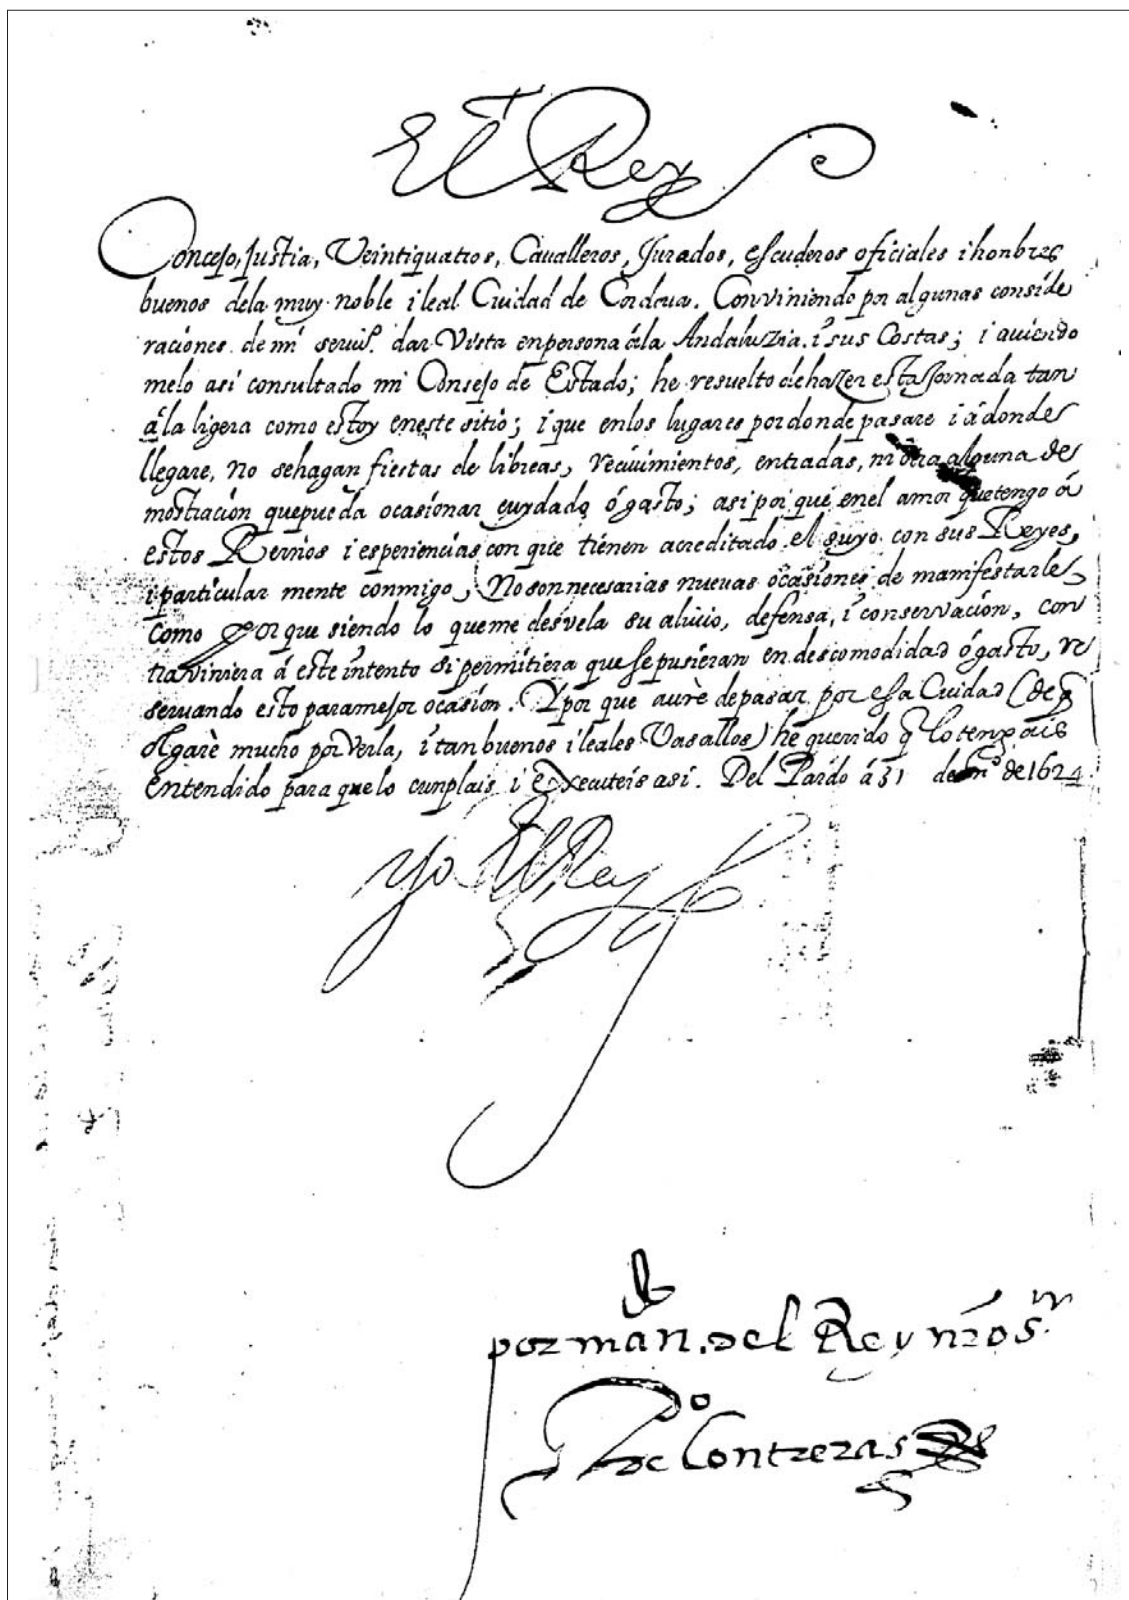 El Rey
Concejo, Justia, Veintiquatros, Cavalleros, Jurados, escuderos oficiales i honbres
buenos dela muy noble i leal Ciudad de Cordova. Conviniendo por algunas conside
raciones de mi servi.º dar Vista enpersona ála Andaluzia. i sus Costas; i aviendo
melo asi consultado mi Consejo de Estado; he resuelto dehazer estajornada tan
á la ligera como estoy eneste sitio; i que enlos lugares pordonde pasare i á donde
llegare, no sehagan fiestas de libreas, recivimientos, entradas, ni otra alguna de
mostración quepueda ocasionar cuydado ó gasto; asi por que enel amor que tengo á
estos Reynos i esperiencias con que tienen acreditado el suyo con sus Reyes,
i particular mente conmigo, No son necesarias nuevas ocasiones de manifestarle,
como Por que siendo lo queme desvela su alivio, defensa, i conservación, con
traviniera á este intento si permitiera que se pusieran en descomodidad ó gasto, re
servando esto paramejor ocasión. Y por que avrè depasar por esa Ciudad (de q̃
olgarè mucho por Verla, i tan buenos i leales Vasallos) he querido q̃ lo tengais
entendido para quelo cunplais i executeis asi. Del Pardo á 31 de en.º de 1624
Yo El Rey
por man. del Rey nr̃o s.r
P.º de Contreras